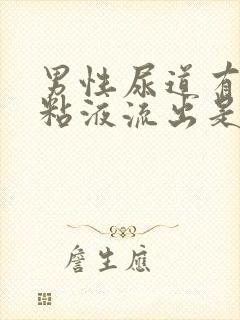 男性尿道有
粘液流出是
詹生應